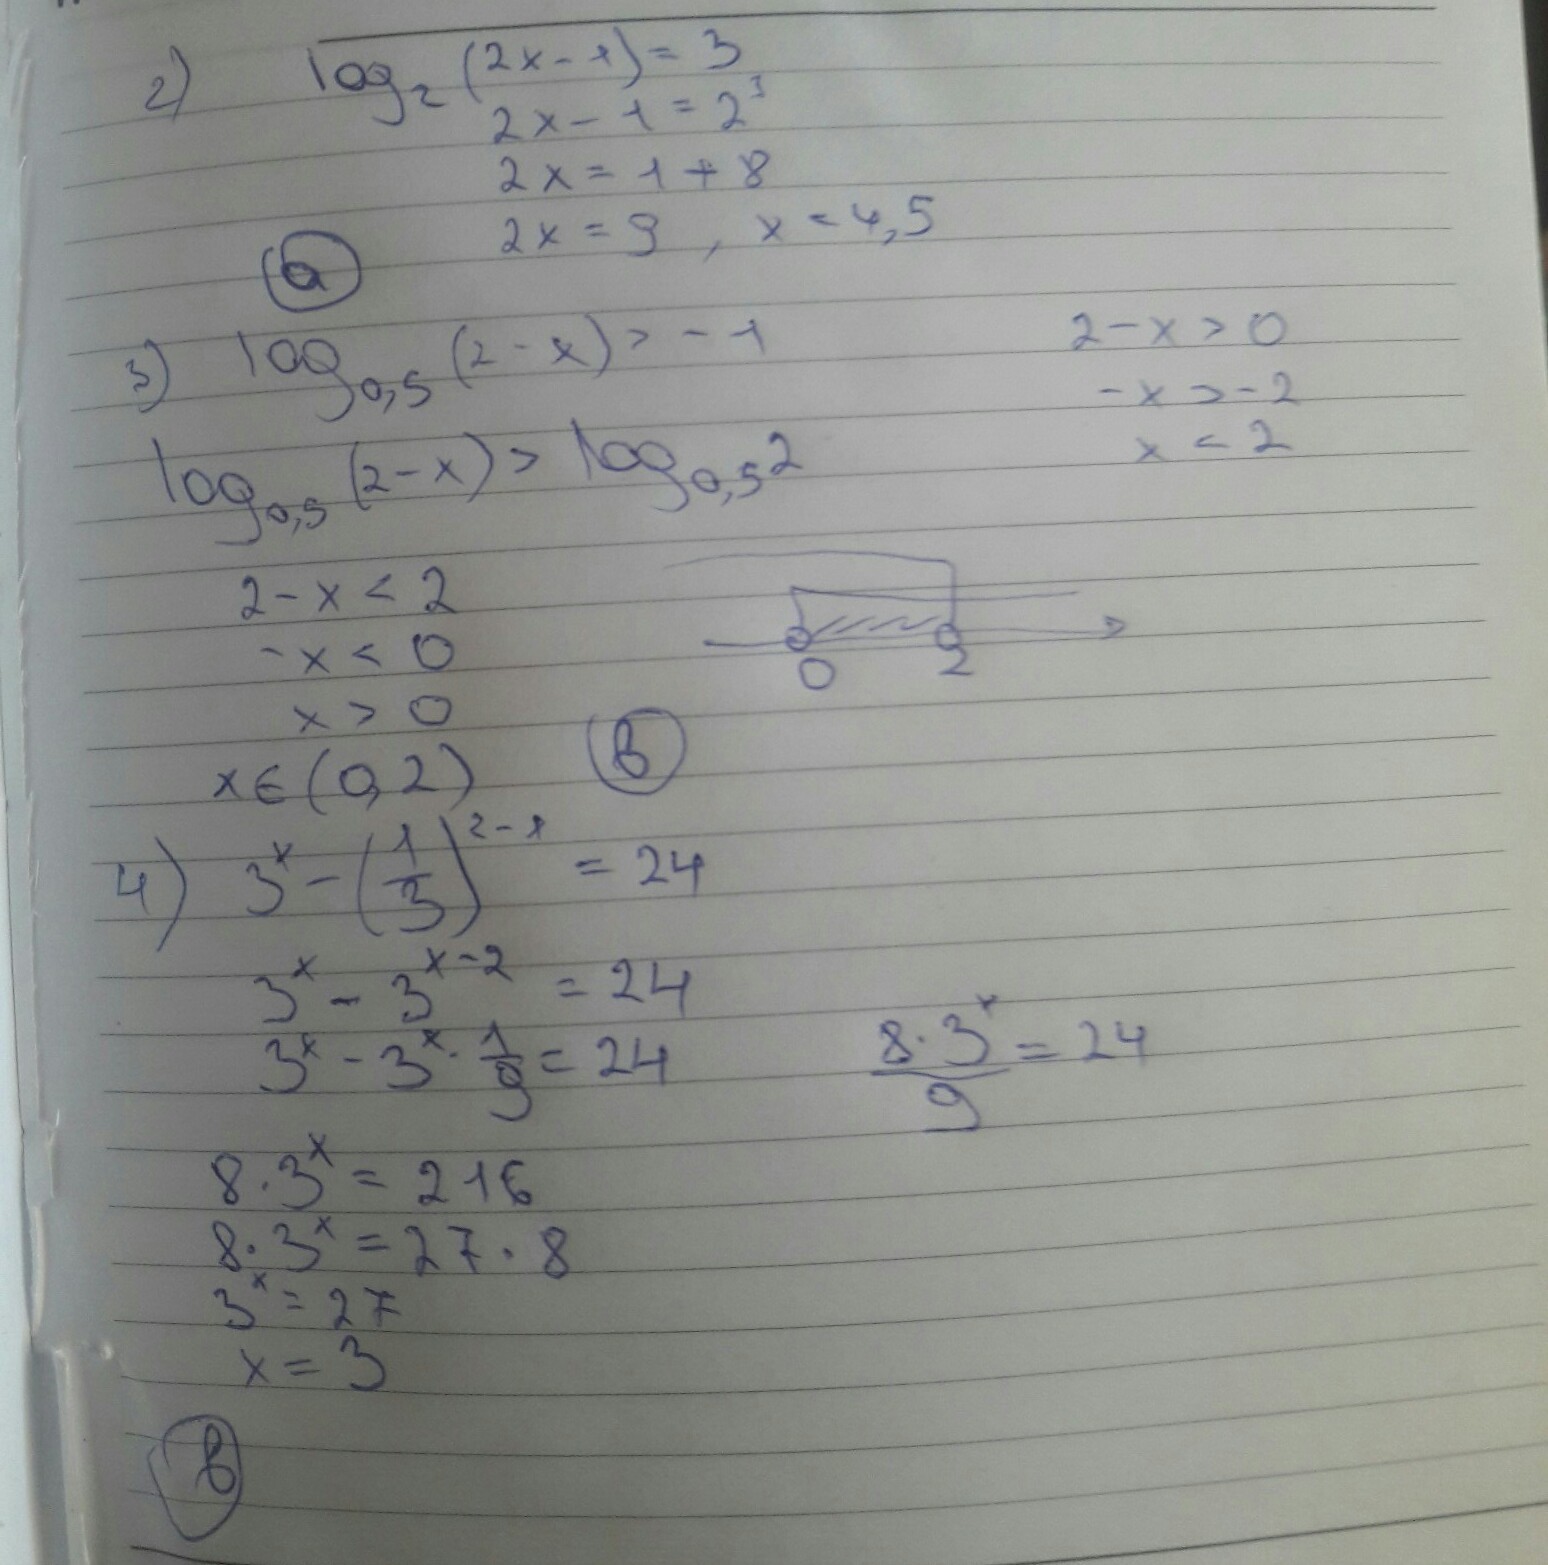 2) log₂ (2x-1) = 3
2x-1 = 2³
2x = 1 + 8
2x = 9 , x = 4,5
а
3) log₀,₅ (2-x) > -1
2-x > 0
-x > -2
x < 2
log₀,₅ (2-x) > log₀,₅ 2
2-x < 2
-x < 0
x > 0
0 2
x ∈ (0, 2)
в
4) 3ˣ - (1/3)²⁻ˣ = 24
3ˣ - 3ˣ⁻² = 24
3ˣ - 3ˣ · 1/9 = 24
8·3ˣ/9 = 24
8·3ˣ = 216
8·3ˣ = 27·8
3ˣ = 27
x = 3
в